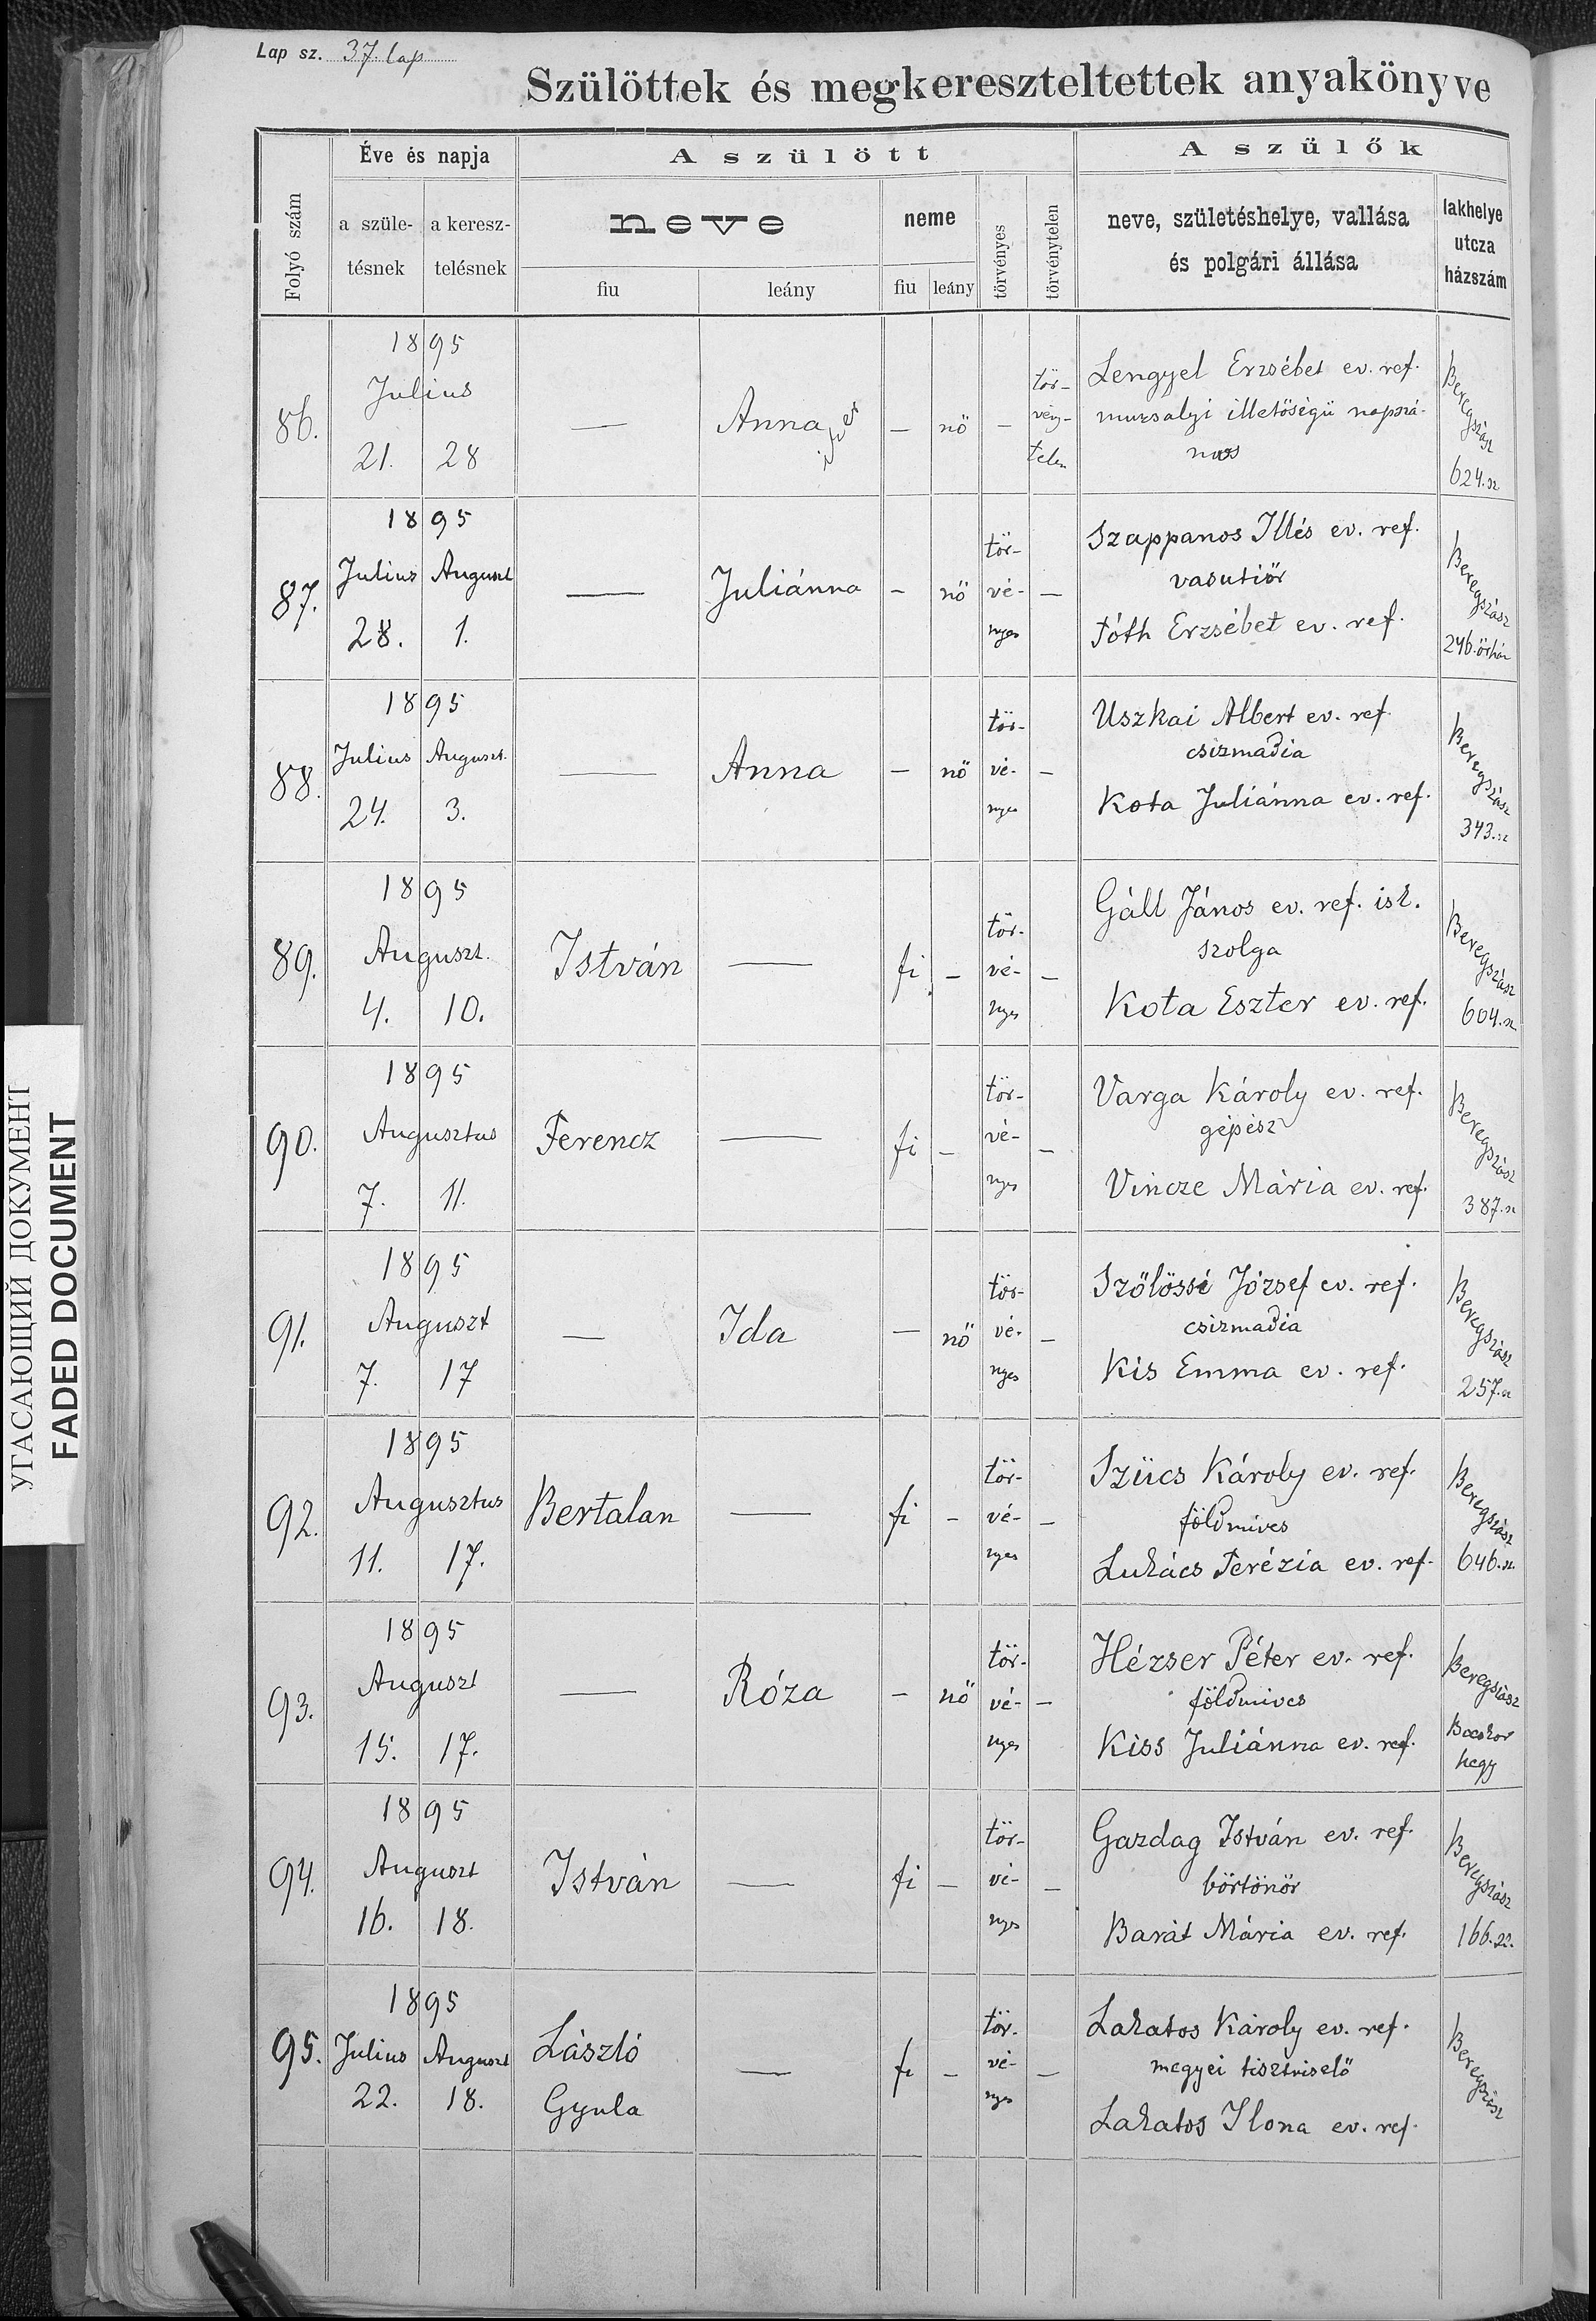 Lap sz. 37. lap
Szülöttek és megkereszteltettek anyakönyve
Folyó szám
Éve és napja
a szüle-
tésnek
a keresz-
telésnek
A szülött
neve
fiu
leány
neme
fiu
leány
törvényes
törvénytelen
A szülők
neve, születéshelye, vallása
és polgári állása
lakhelye
utcza
házszám
86.
1895
Julius
21. 28
—
Anna
—
nő
—
tör-
vény-
telen
Lengyel Erzsébet ev. ref.
muzsalyi illetőségü napszá-
mos
Beregszász
624. sz
87.
1895
Julius Auguszt
28. 1.
—
Juliánna
-
nő
tör-
vé-
nyes
—
Szappanos Illés ev. ref.
vasutiőr
Tóth Erzsébet ev. ref.
Beregszász
246. őrház
88.
1895
Julius Auguszt.
24. 3.
—
Anna
—
nő
tör-
vé-
nyes
—
Uszkai Albert ev. ref.
csizmadia
Kota Juliánna ev. ref.
Beregszász
343. sz
89.
1895
Auguszt.
4. 10.
István
—
fi
—
tör-
vé-
nyes
—
Gáll János ev. ref. isk.
szolga
Kota Eszter ev. ref.
Beregszász
604. sz
90.
1895
Augusztus
7. 11.
Ferencz
—
fi
—
tör-
vé-
nyes
—
Varga Károly ev. ref.
gépész
Vincze Mária ev. ref.
Beregszász
387. sz
91.
1895
Auguszt
7. 17
—
Ida
—
nő
tör-
vé-
nyes
—
Szőlőssi József ev. ref.
csizmadia
Kis Emma ev. ref.
Beregszász
257. sz
92.
1895
Augusztus
11. 17.
Bertalan
—
fi
-
tör-
vé-
nyes
—
Szücs Károly ev. ref.
földmives
Lukács Terézia ev. ref.
Beregszász
646. sz.
93.
1895
Auguszt
15. 17.
—
Róza
-
nő
tör-
vé-
nyes
—
Hézser Péter ev. ref.
földmives
Kiss Juliánna ev. ref.
Beregszász
Bocskor
hegy
94.
1895
Auguszt
16. 18.
István
—
fi
—
tör-
vé-
nyes
—
Gazdag István ev. ref.
börtönör
Barát Mária ev. ref.
Beregszász
166. sz.
95.
1895
Julius Auguszt
22. 18.
László
Gyula
—
fi
—
tör-
vé-
nyes
—
Lakatos Károly ev. ref.
megyei tisztviselő
Lakatos Ilona ev. ref.
Beregszász
УГАСАЮЩИЙ ДОКУМЕНТ
FADED DOCUMENT